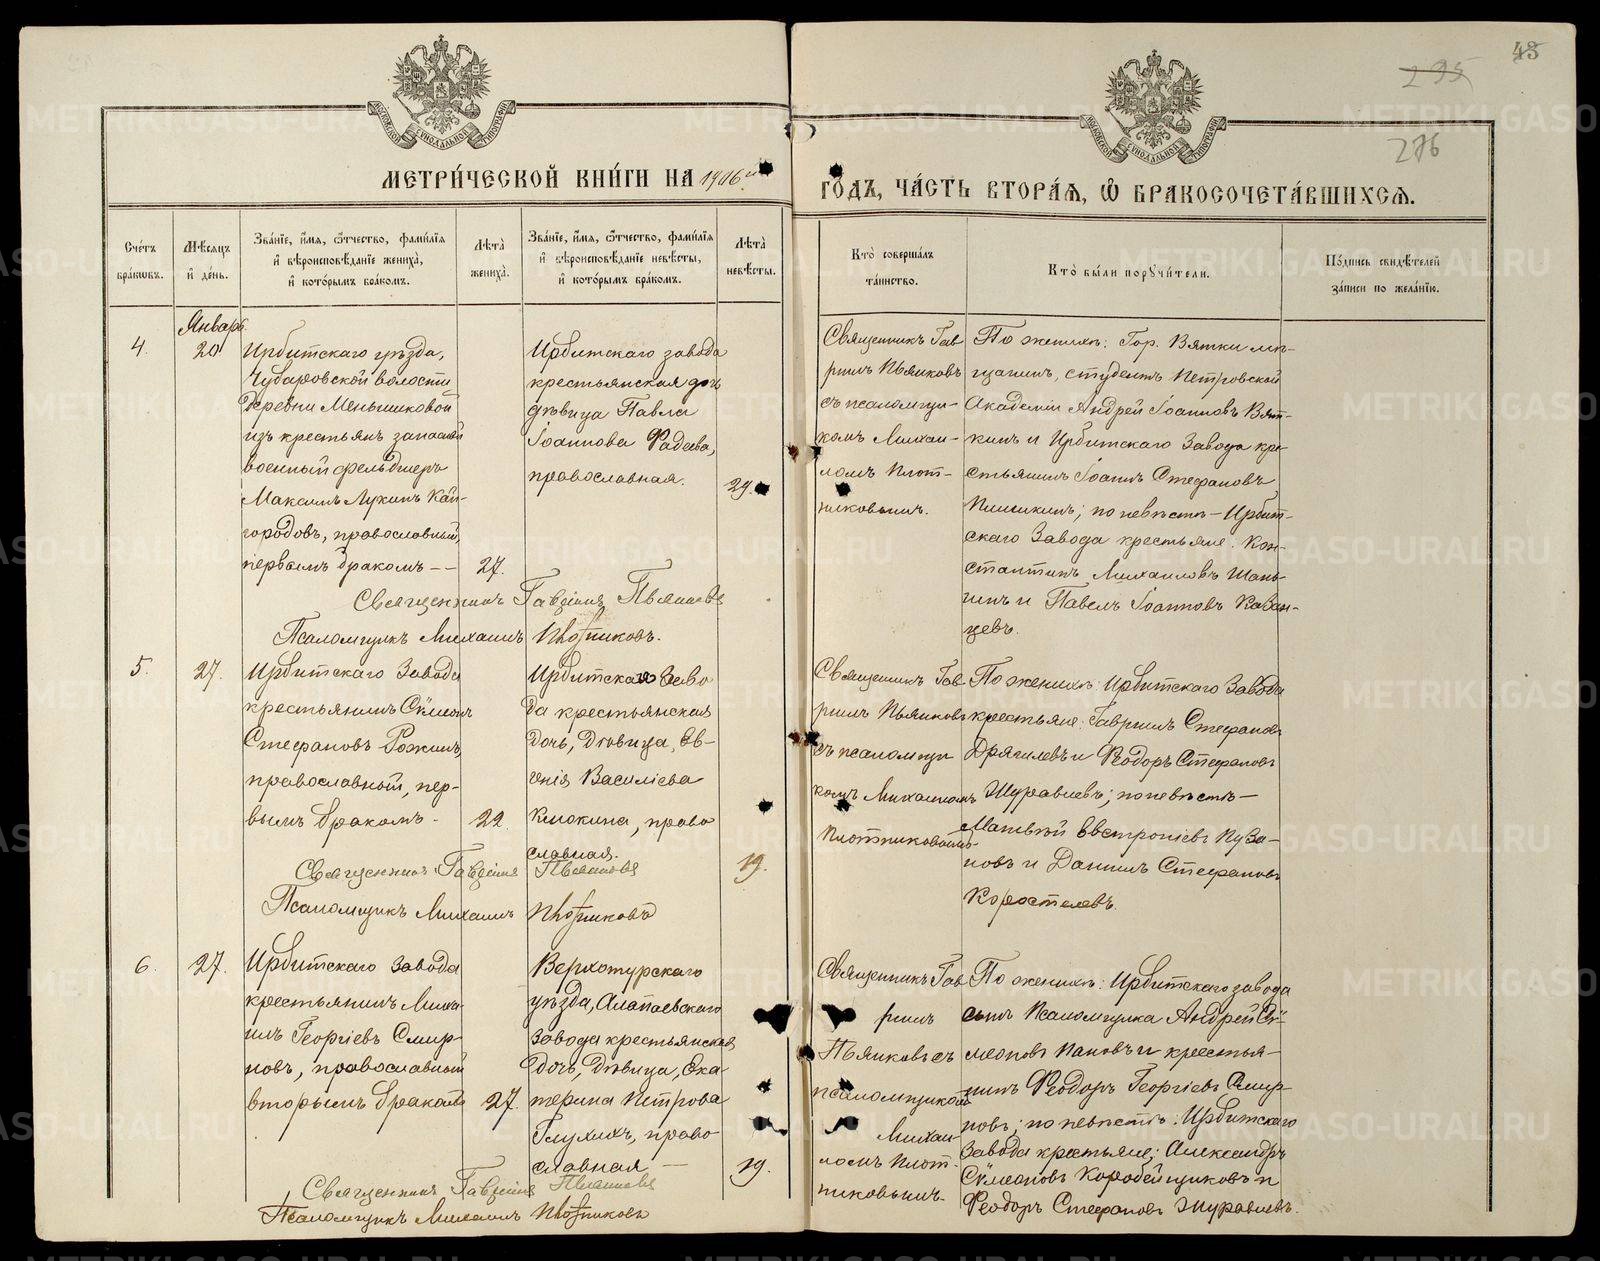 43
295
276
МОСКОВСКОЙ СѴНОДАЛЬНОЙ ТИПОГРАФІИ
МОСКОВСКОЙ СѴНОДАЛЬНОЙ ТИПОГРАФІИ
МЕТРИ́ЧЕСКОЙ КНИ́ГИ НА 1906й
ГО́ДЪ, ЧА́СТЬ ВТОРА́Ѧ, Ѽ БРАКОСОЧЕТА́ВШИХСѦ.
Сче́тъ бра́кѡвъ.
Мѣ́сѧцъ и҆ де́нь.
Зва́нїе, и҆́мѧ, ѻ҆́тчество, фами́лїѧ и҆ вѣроисповѣ́данїе жениха̀, и҆ кото́рымъ бра́комъ.
Лѣ́та̀ жениха̀.
Зва́нїе, и҆́мѧ, ѻ҆́тчество, фами́лїѧ и҆ вѣроисповѣ́данїе невѣ́сты, и҆ кото́рымъ бра́комъ.
Лѣ́та̀ невѣ́сты.
Кто̀ соверша́лъ та́инство.
Кто̀ бы́ли порꙋчи́тели.
По́дпись свидѣ́телей за́писи по жела́нїю.
Январь
4.
20
Ирбитскаго уѣзда,
Чубаровской волости
деревни Меньшиковой
изъ крестьянъ запасный
военный фельдшеръ
Максимъ Лукинъ Кай-
городовъ, православный,
первымъ бракомъ
27.
Ирбитскаго завода
крестьянская дочь
дѣвица Павла
Іоаннова Фадеева,
православная.
29.
Священникъ Гав
риилъ Пьянковъ
съ псаломщи-
комъ Михаи-
ломъ Плот-
никовымъ.
По женихѣ: Гор. Вятки мѣ-
щанинъ, студентъ Петровской
Академіи Андрей Іоанновъ Вят-
кинъ и Ирбитскаго Завода кре
стьянинъ Іоаннъ Стефановъ
по невѣстѣ - Ирбит-
скаго Завода крестьяне: Кон-
стантинъ Михаиловъ Шань-
гинъ и Павелъ Іоанновъ Казан-
цевъ.
Священникъ Гавріилъ Пьянковъ
Псаломщикъ Михаилъ Плотниковъ.
5.
27.
Ирбитскаго Завода
крестьянинъ Сѵмеонъ
Стефановъ Рожинъ,
православный, пер-
вымъ бракомъ -
22.
Ирбитскаго Заво
да крестьянская
дочь, дѣвица, Ев-
генія Василіева
Клюкина, право
славная.
19.
Священникъ Гав
риилъ Пьянковъ
съ псаломщи
комъ Михаиломъ
Плотниковымъ.
По женихѣ: Ирбитскаго Завода
крестьяне: Гавріилъ Стефановъ
Дрягилевъ и Ѳеодоръ Стефановъ
Журавлевъ; по невѣстѣ -
Матвѣй Евстропіевъ Пуза-
новъ и Даніилъ Стефановъ
Коростелевъ.
Священникъ Гавріилъ Пьянковъ
Псаломщикъ Михаилъ Плотниковъ
6.
27.
Ирбитскаго Завода
крестьянинъ Миха-
илъ Георгіевъ Смир-
новъ, православный
вторымъ бракомъ
27.
Верхотурскаго
уѣзда, Алапаевскаго
завода крестьянская
дочь, дѣвица, Ека-
терина Петрова
Глухихъ, право
славная —
19.
Священникъ Гав
риилъ
Пьянковъ съ
псаломщикомъ
Михаи-
ломъ Плот-
никовымъ.
По женихѣ: Ирбитскаго завода
сынъ Псаломщика Андрей Сѵ-
меоновъ Поповъ и крестья-
нинъ Ѳеодоръ Георгіевъ Смир-
новъ; по невѣстѣ: Ирбитскаго
Завода крестьяне; Александръ
Сѵмеоновъ Коробейщиковъ и
Ѳеодоръ Стефановъ Журавлевъ.
Священникъ Гавріилъ Пьянковъ
Псаломщикъ Михаилъ Плотниковъ
METRIKI.GASO-URAL.RU